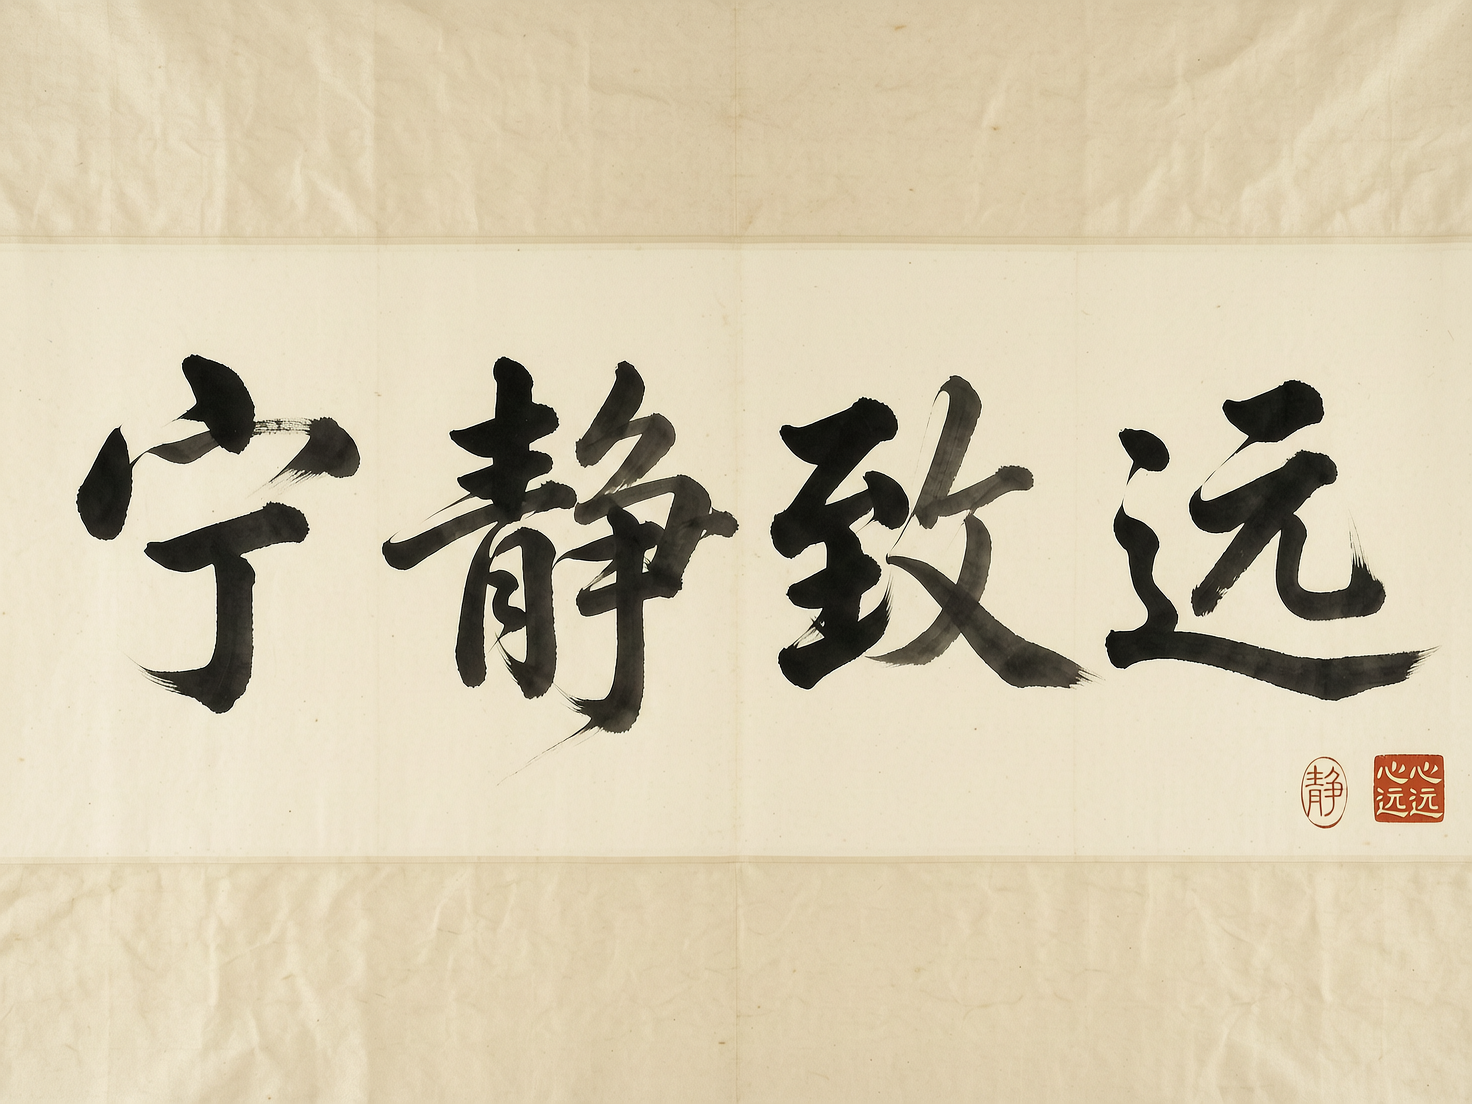 宁静致远
静
心心
远远